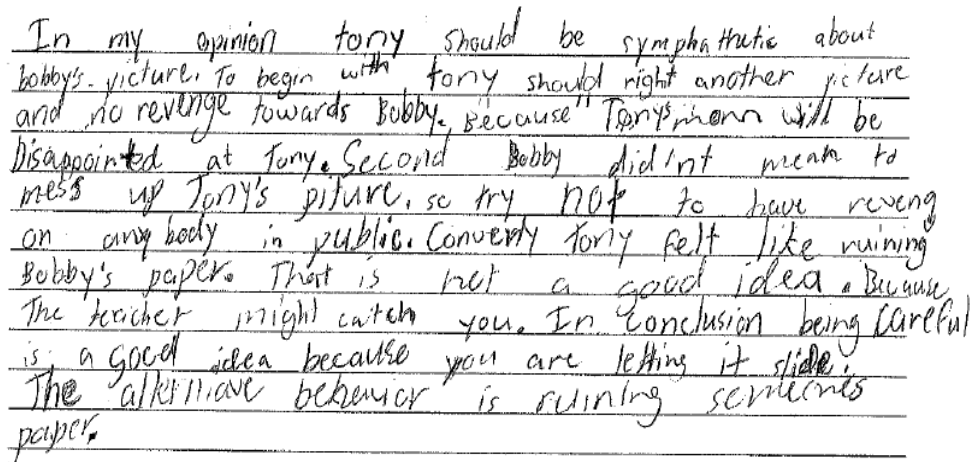 In my opinion tony should be symphathetic about
bobby's picture. To begin with tony should right another picture
and no revenge towards Bobby. Because Tony's mom will be
Disappointed at Tony. Second Bobby did'nt mean to
mess up Tony's piture. so try not to have reveng
on any body in public. Converly Tony felt like ruining
Bobby's paper. That is not a good idea. Because
The teacher might catch you. In conclusion being careful
is a good idea because you are letting it slide.
The behavior is ruining someones
paper.